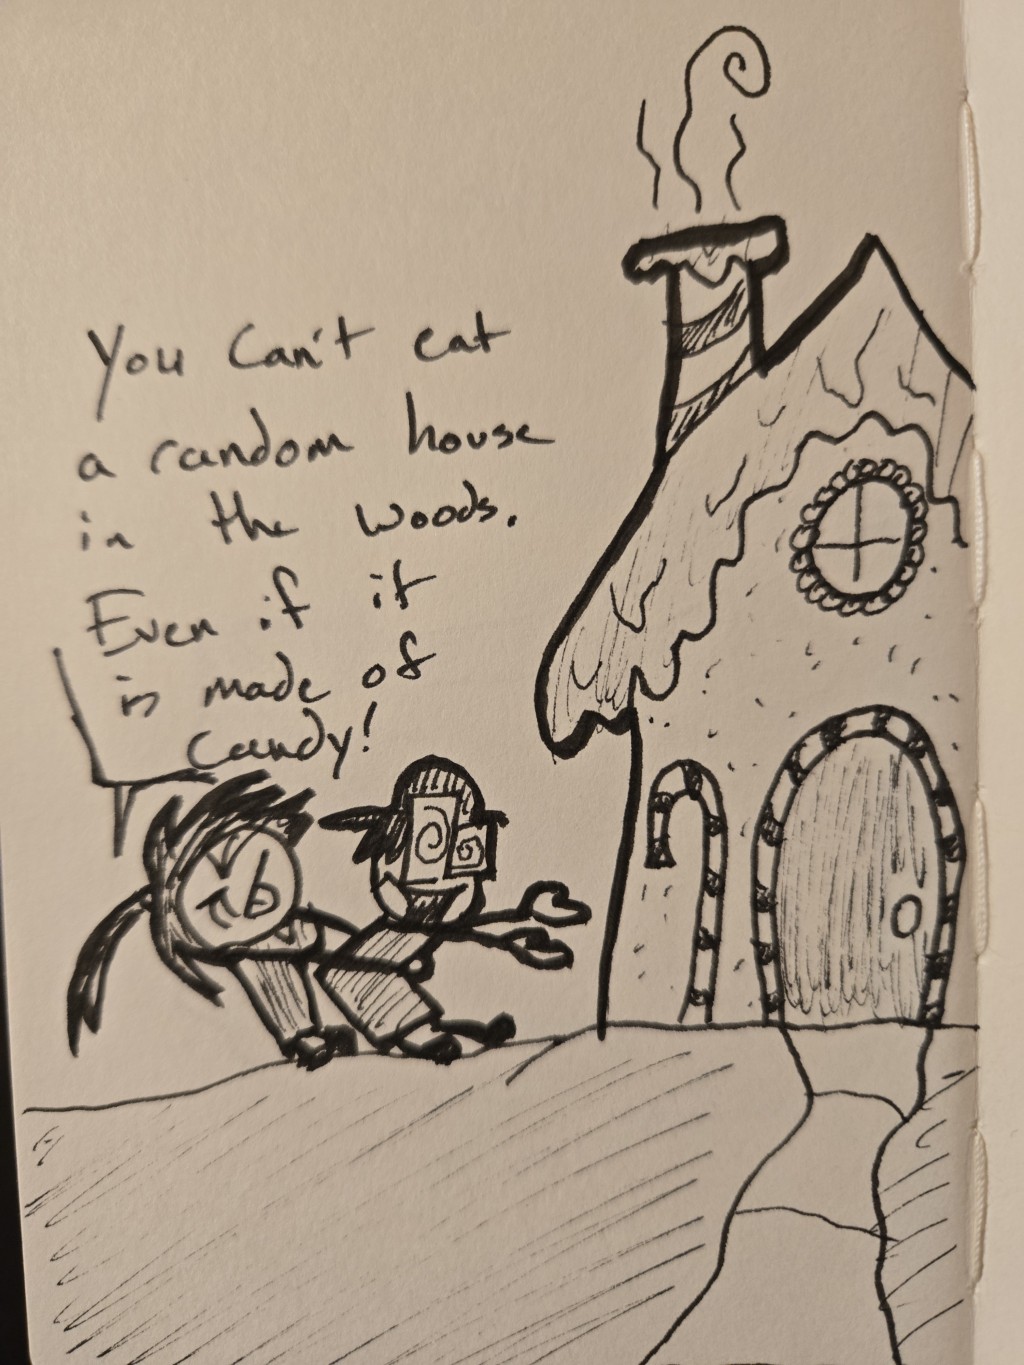 You Can't eat
a random house
in the woods.
Even if it
is made of
Candy!